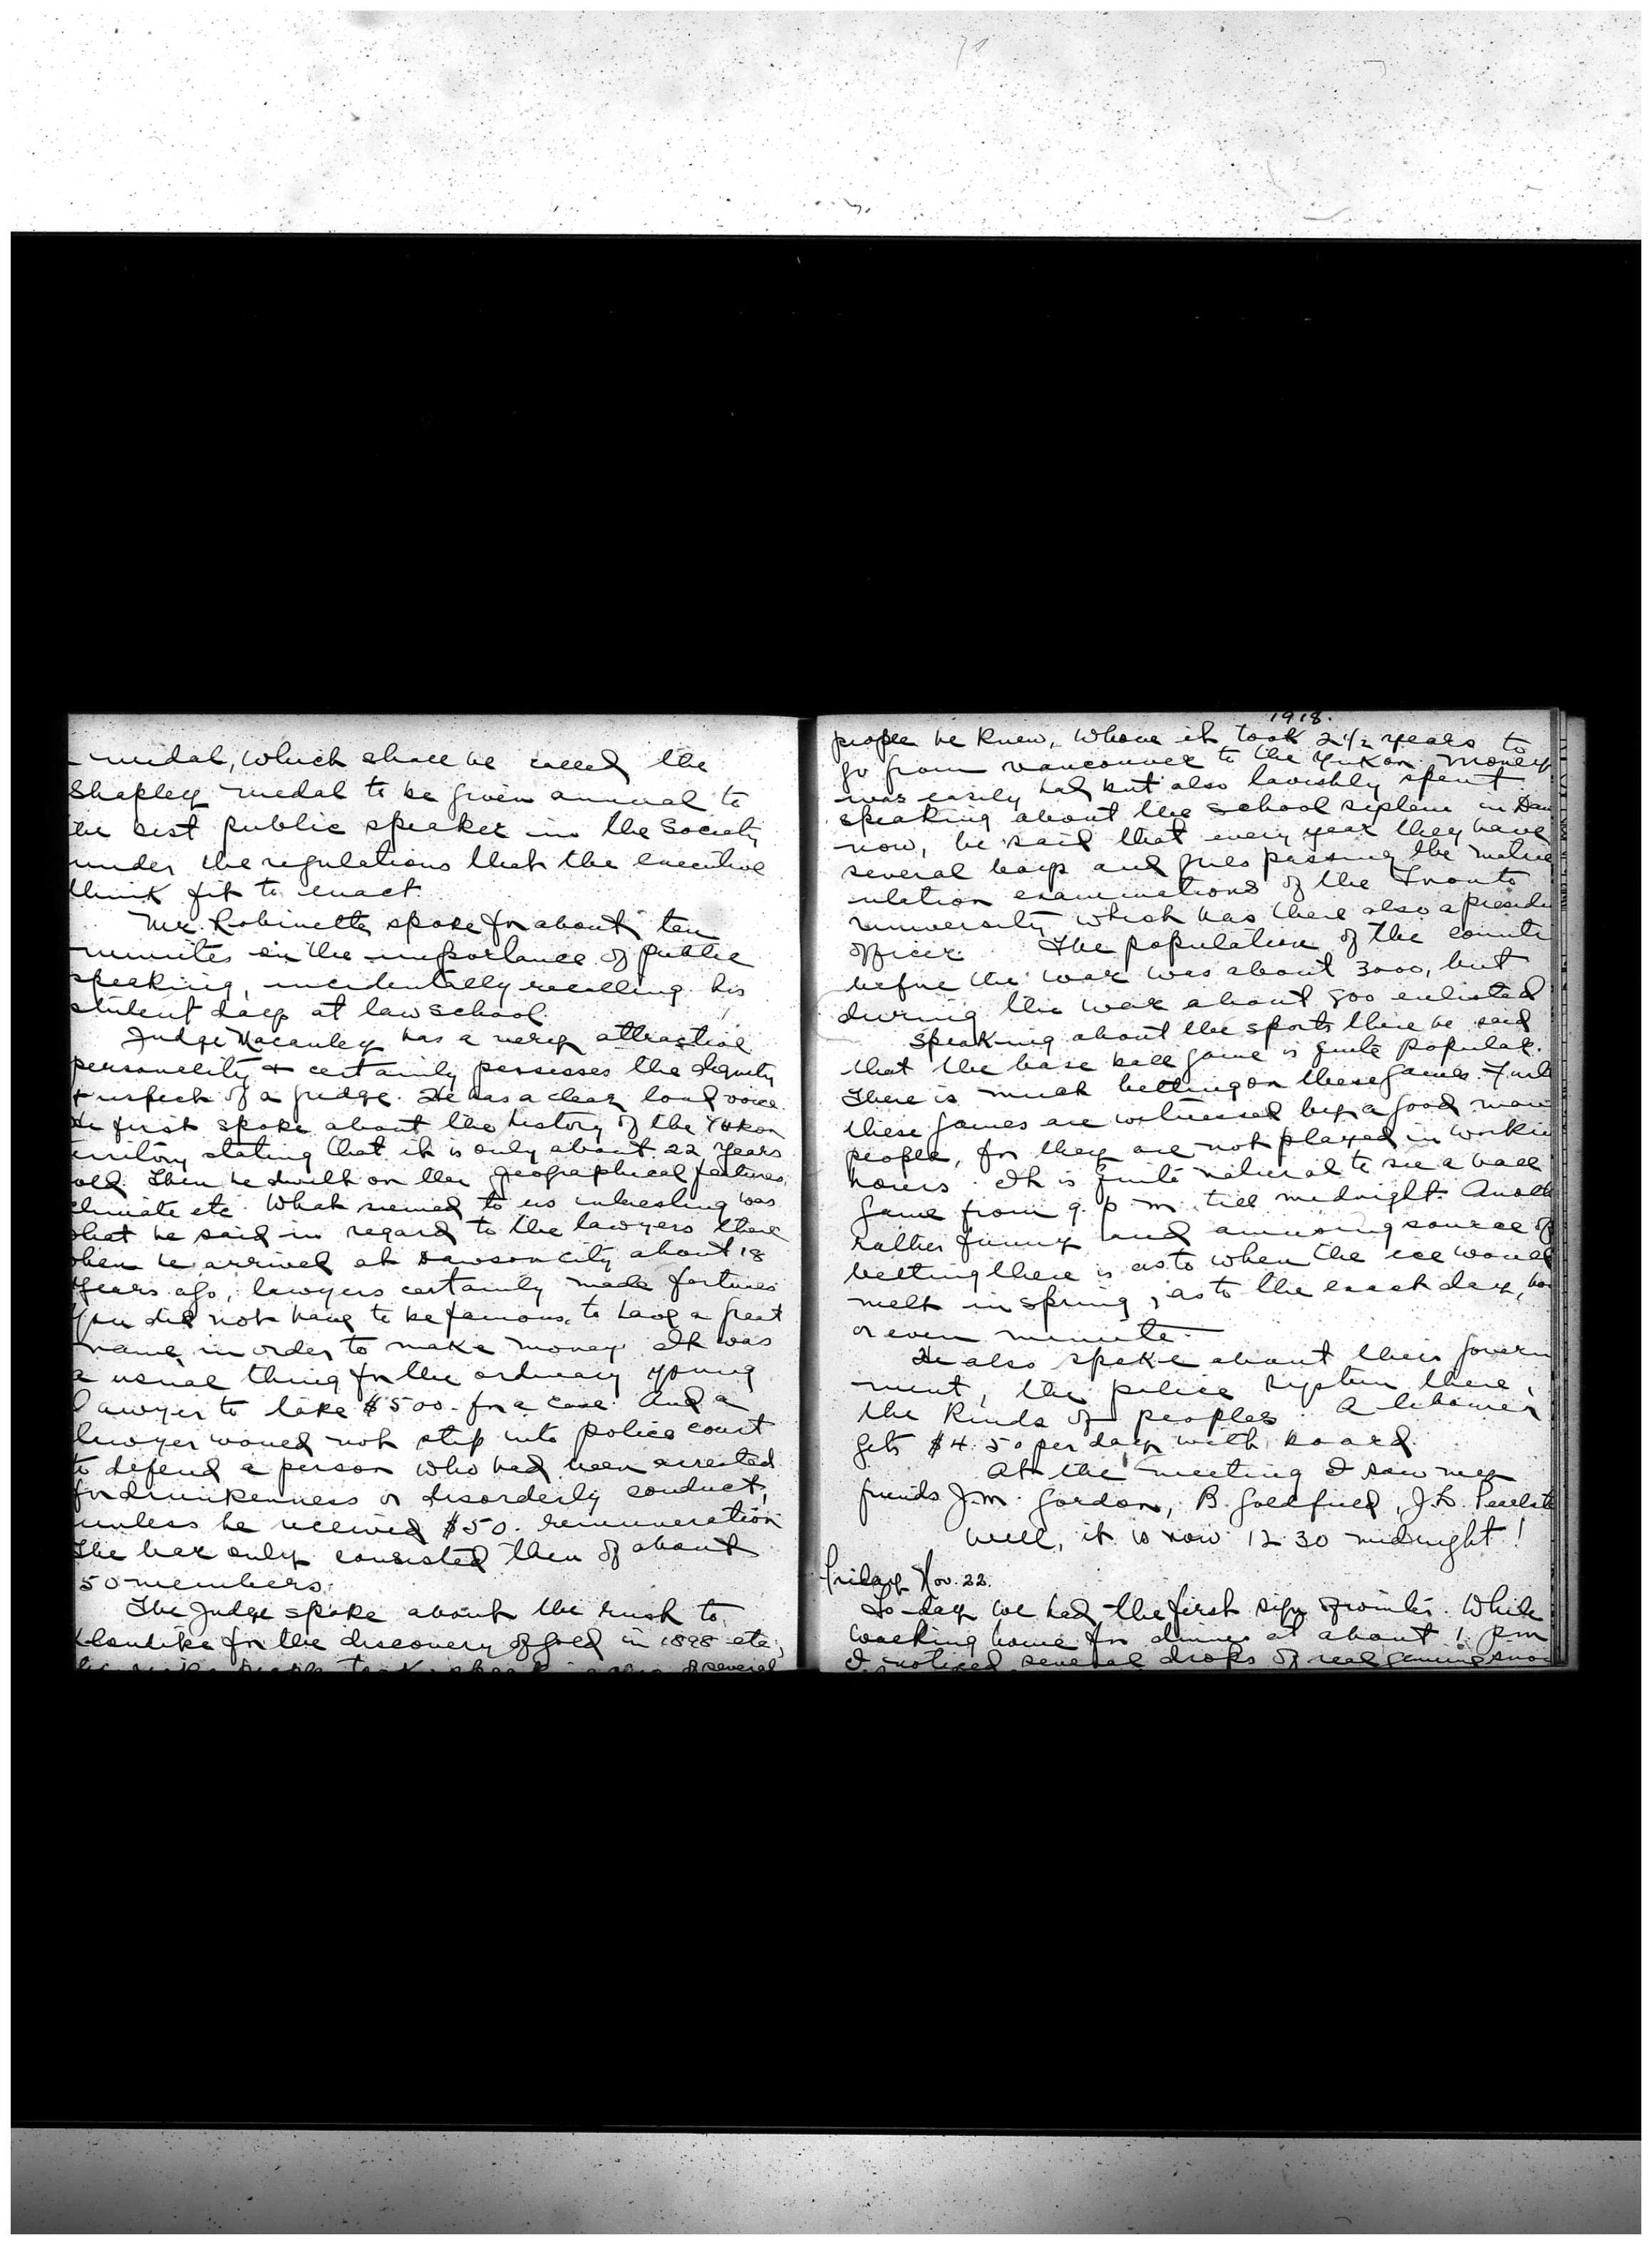 medal, which shall be called the
Shapley medal to be given annual to
the best public speaker in the Society
under the regulations that the executive
think fit to enact.
Mr. Robinette spoke for about ten
minutes on the importance of public
speaking, incidentally recalling his
student days at law school.
Judge Macauley has a very attractive
personality & certainly possesses the dignity
& respect of a judge. He has a clear loud voice.
He first spoke about the history of the Yukon
territory stating that it is only about 22 years
old. Then he dwelt on the geographical features,
climate etc. What seemed to us interesting was
what he said in regard to the lawyers there
when he arrived at Dawson City about 18
years ago, lawyers certainly made fortunes
You did not have to be famous, to have a great
name, in order to make money. It was
a usual thing for the ordinary young
lawyer to take $500. for a case. And a
lawyer would not step into police court
to defend a person who had been arrested
for drunkenness or disorderly conduct,
unless he received $50. remuneration
The bar only consisted then of about
50 members.
The Judge spoke about the rush to
Klondike for the discovery of gold in 1898 etc,
several
1918.
people he knew, whom it took 2 1/2 years to
go from Vancouver to the Yukon. Money
was easily had but also lavishly spent
speaking about the school system in Daw
now, he said that every year they have
several boys and girls passing the matric
ulation examinations of the Toronto
University which has there also a presidi
officer. The population of the countr
before the war was about 3000, but
during the war about 800 enlisted
Speaking about the sports there he said
that the base ball game is quite popular.
There is much betting on these games. Furth
these games are witnessed by a good man
people, for they are not played in workin
hours. It is quite natural to see a ball
game from 9. p. m. till midnight. Anoth
rather funny and amusing source of
betting there is as to when the ice would
melt in spring, as to the exact day, ho
or even minute.
He also spoke about their govern
ment, the police system there,
the kinds of peoples. A labourer
gets $4.50 per day with board.
At the meeting I saw my
friends J.M. Gordon, B. Goldfield, J.L.
Well, it is now 12 30 midnight!
Friday Nov. 22.
To-day we had the first sign of winter. While
walking home for dinner at about 1. pm
I noticed several drops of real genuine snow